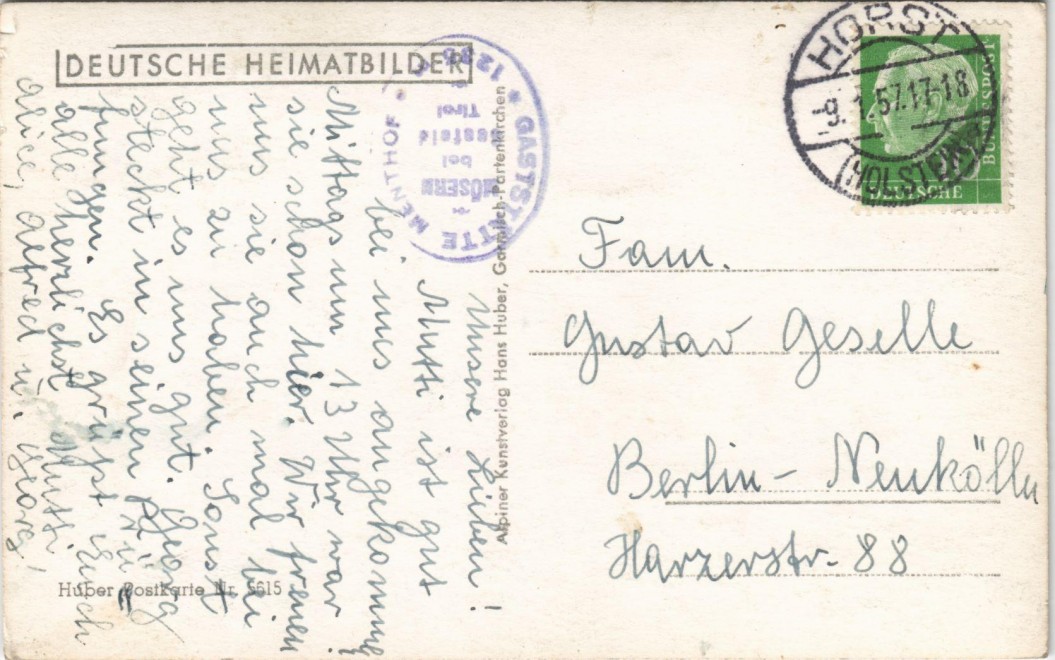 DEUTSCHE HEIMATBILDER
GASTSTÄTTE MENTHOF
1285
MÖSERN
bei
Seefeld
Tirol
HORST
-9.1.57.17-18
(HOLSTEIN)
DEUTSCHE
BUNDESPOST
Unsere Lieben!
Mutti ist gut
bei uns angekommen
Mittags um 13 Uhr war
sie schon hier. Wir freuen
uns sie auch mal bei
uns zu haben. Sonst
geht es uns gut. Georg
steckt in seinen
fungen. Es grüßt Euch
alle herzlichst Mutti,
Alice, Alfred u. Georg,
Alpiner Kunstverlag Hans Huber, Garmisch-Partenkirchen
Huber Postkarte Nr. 5615
Fam.
Gustav Geselle
Berlin-Neukölln
Harzerstr. 88